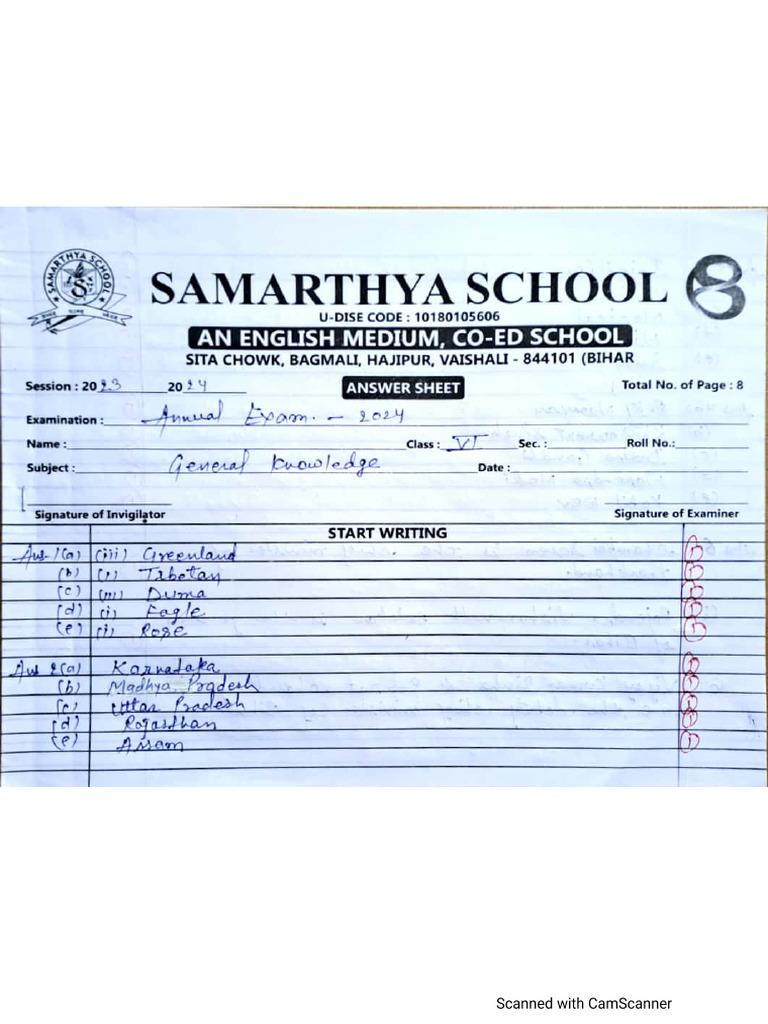 SAMARTHYA SCHOOL
SAMARTHYA SCHOOL
8
U-DISE CODE : 10180105606
AN ENGLISH MEDIUM, CO-ED SCHOOL
SITA CHOWK, BAGMALI, HAJIPUR, VAISHALI - 844101 (BIHAR
Session : 2023 2024 ANSWER SHEET Total No. of Page : 8
Examination : Annual Exam. - 2024
Name : Class : VI Sec. : Roll No.:
Subject : General Knowledge Date :
Signature of Invigilator Signature of Examiner
START WRITING
Ans 1(a) (iii) Greenland 1
(b) (i) Tibetan 1
(c) (iii) Duma 1
(d) (i) Eagle 1
(e) (i) Rose 1
Ans 2(a) Karnataka 1
(b) Madhya Pradesh 1
(c) Uttar Pradesh 1
(d) Rajasthan 1
(e) Assam 1
Scanned with CamScanner